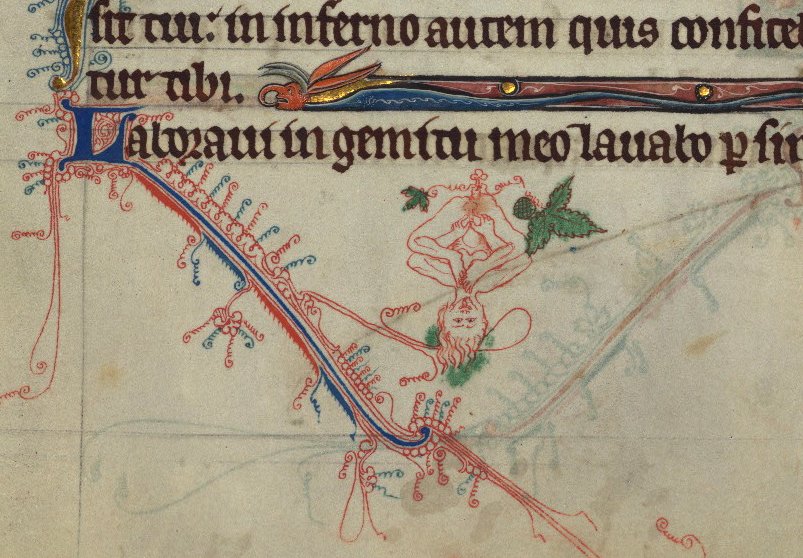 sit tui: in inferno autem quis confite
tur tibi.
Laboraui in gemitu meo lauabo ꝑ sin